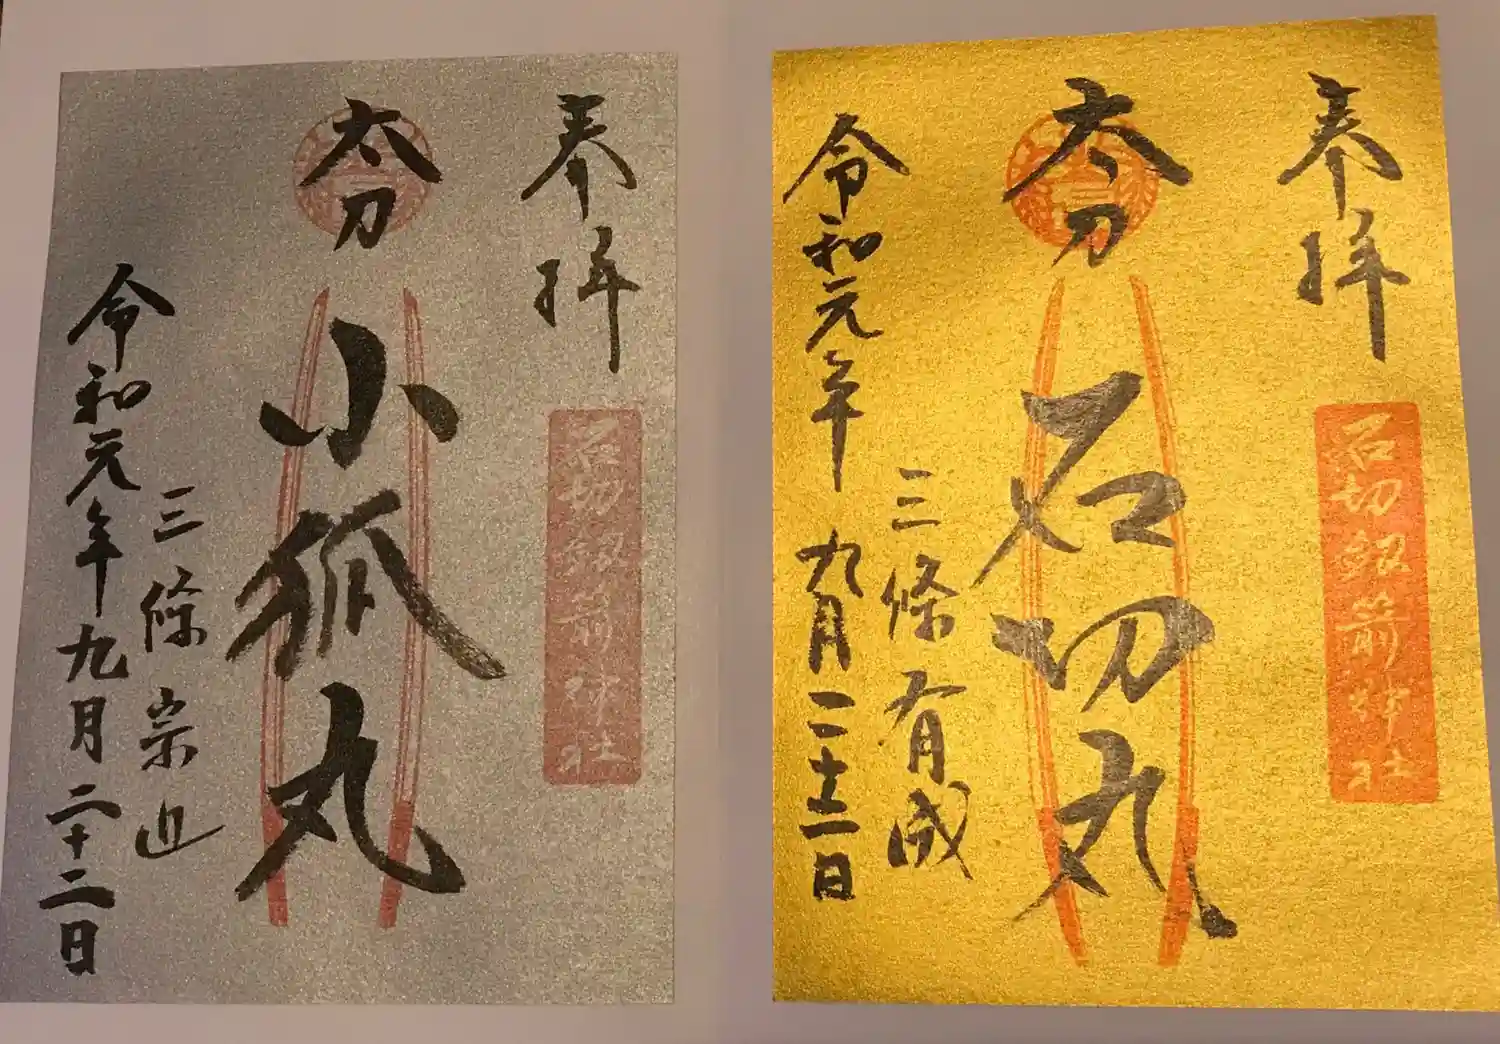 奉拝
石切劔箭神社
太刀
小狐丸
三條宗近
令和元年九月二十二日
奉拝
石切劔箭神社
太刀
石切丸
三條有成
令和元年九月二十二日